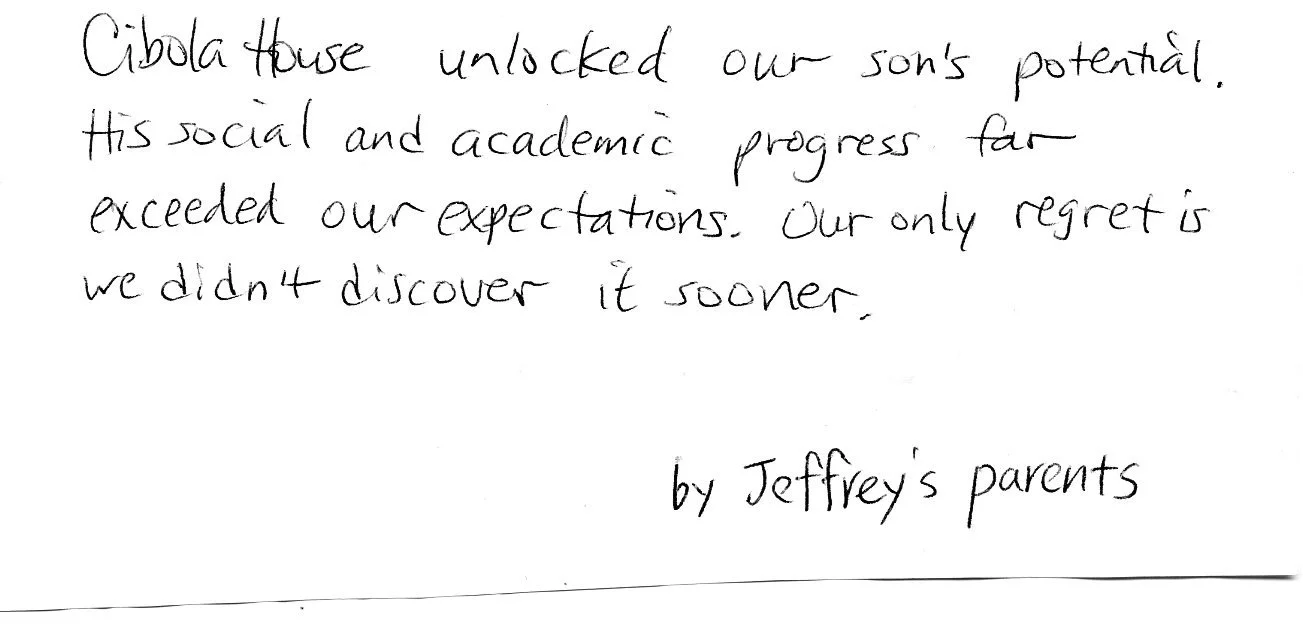 Cibola House unlocked our son's potential.
His social and academic progress far
exceeded our expectations. Our only regret is
we didn't discover it sooner.
by Jeffrey's parents